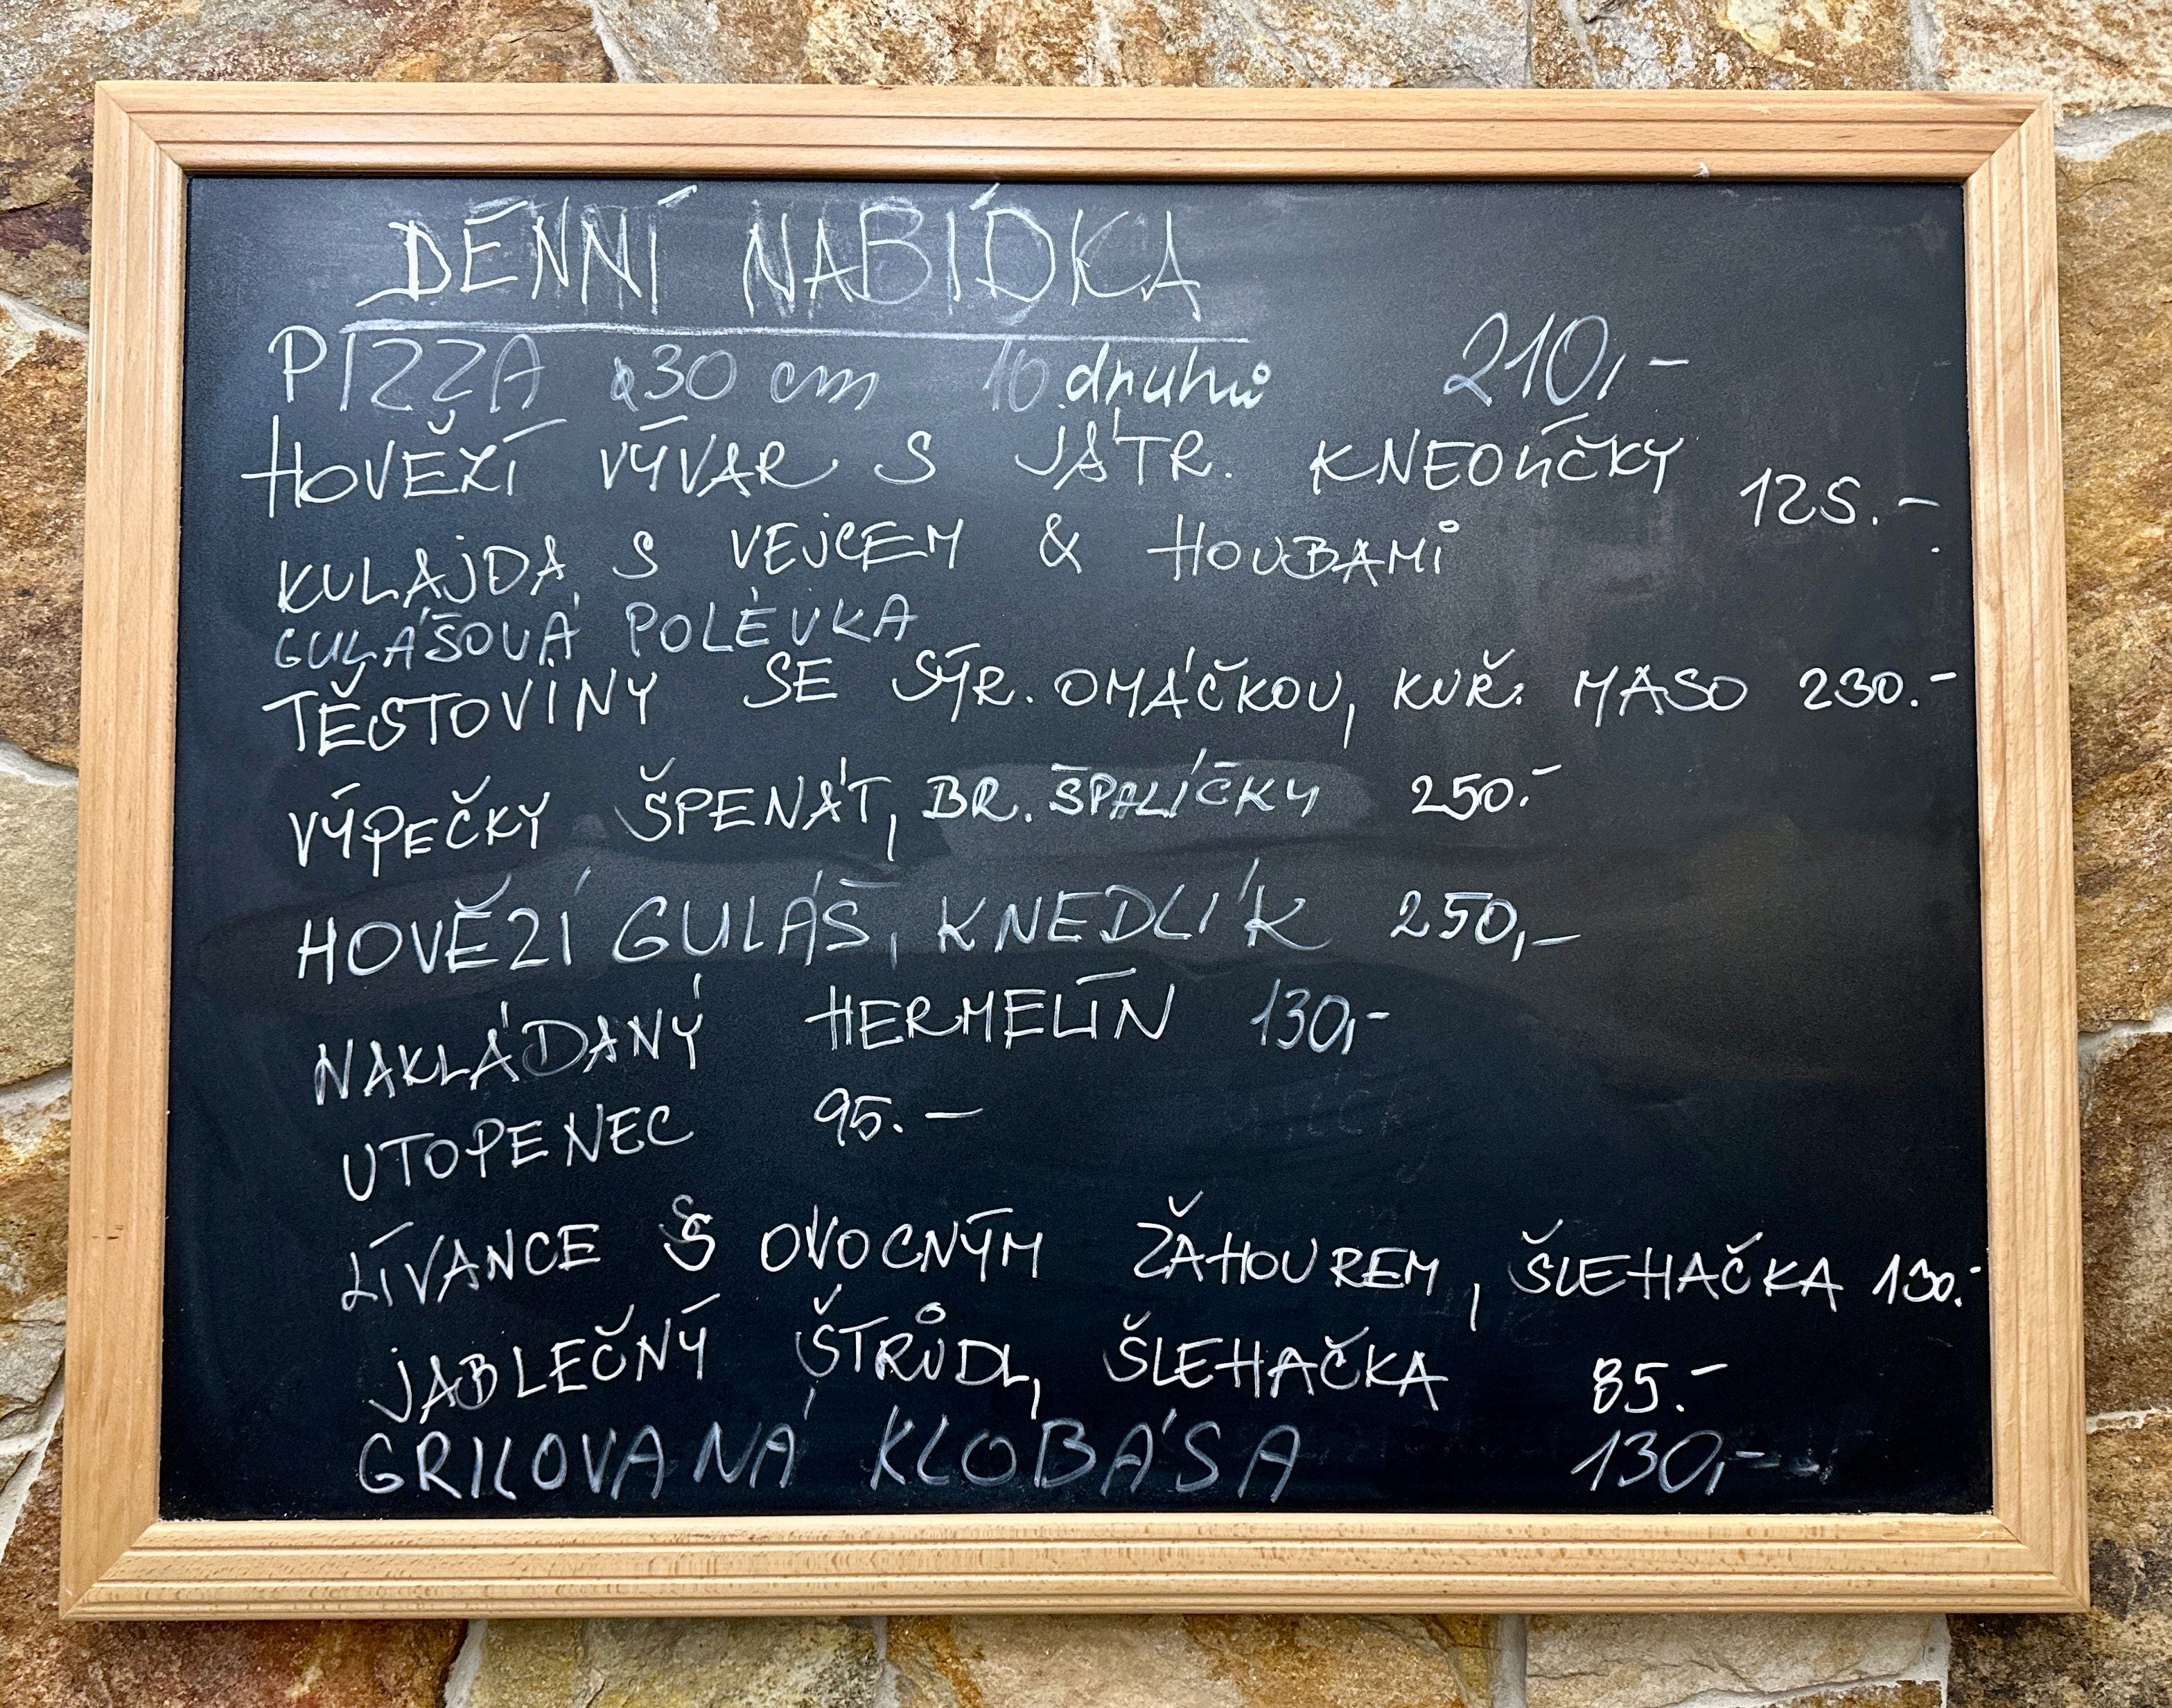 DENNÍ NABÍDKA
PIZZA ø30 cm 10 druhů 210,-
HOVĚZÍ VÝVAR S JÁTR. KNEDLÍČKY 125.-
KULAJDA S VEJCEM & HOUBAMI
GULÁŠOVÁ POLÉVKA
TĚSTOVINY SE SÝR. OMÁČKOU, KUŘ. MASO 230.-
VÝPEČKY ŠPENÁT, BR. ŠPALÍČKY 250.-
HOVĚZÍ GULÁŠ, KNEDLÍK 250,-
NAKLÁDANÝ HERMELÍN 130,-
UTOPENEC 95.-
LÍVANCE S OVOCNÝM ŽAHOUREM, ŠLEHAČKA 130.-
JABLEČNÝ ŠTRŮDL, ŠLEHAČKA 85.-
GRILOVANÁ KLOBÁSA 130,-